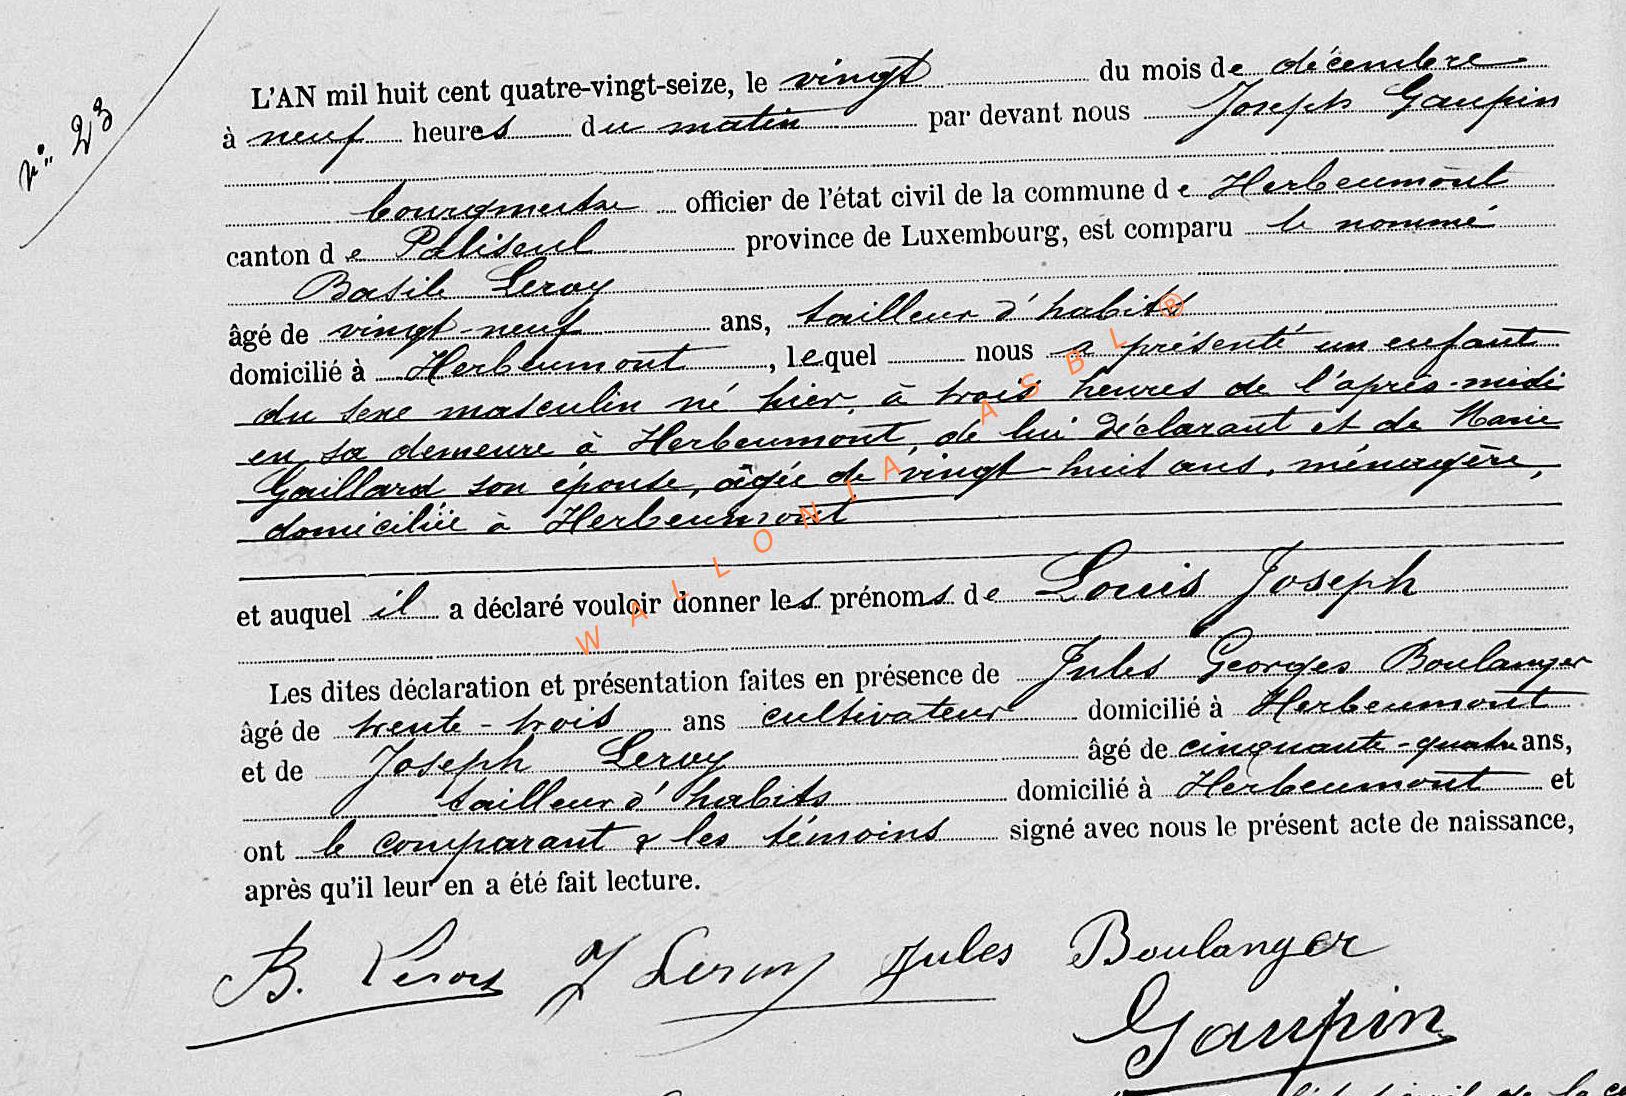 n° 23
L'AN mil huit cent quatre-vingt-seize, le vingt du mois de décembre
à neuf heures du matin par devant nous Joseph Gaupin
bourgmestre officier de l'état civil de la commune de Herbeumont
canton de Paliseul province de Luxembourg, est comparu le nommé
Basile Leroy
âgé de vingt-neuf ans, tailleur d'habits
domicilié à Herbeumont, lequel nous a présenté un enfant
du sexe masculin né hier, à trois heures de l'après-midi
en sa demeure à Herbeumont, de lui déclarant et de Marie
Gaillard son épouse, âgée de vingt-huit ans, ménagère,
domiciliée à Herbeumont
et auquel il a déclaré vouloir donner les prénoms de Louis Joseph
Les dites déclaration et présentation faites en présence de Jules Georges Boulanger
âgé de trente-trois ans cultivateur domicilié à Herbeumont
et de Joseph Leroy âgé de cinquante-quatre ans,
tailleur d'habits domicilié à Herbeumont et
ont le comparant & les témoins signé avec nous le présent acte de naissance,
après qu'il leur en a été fait lecture.
B. Leroy J Leroy Jules Boulanger
Gaupin
WALLONIA ASBL ®